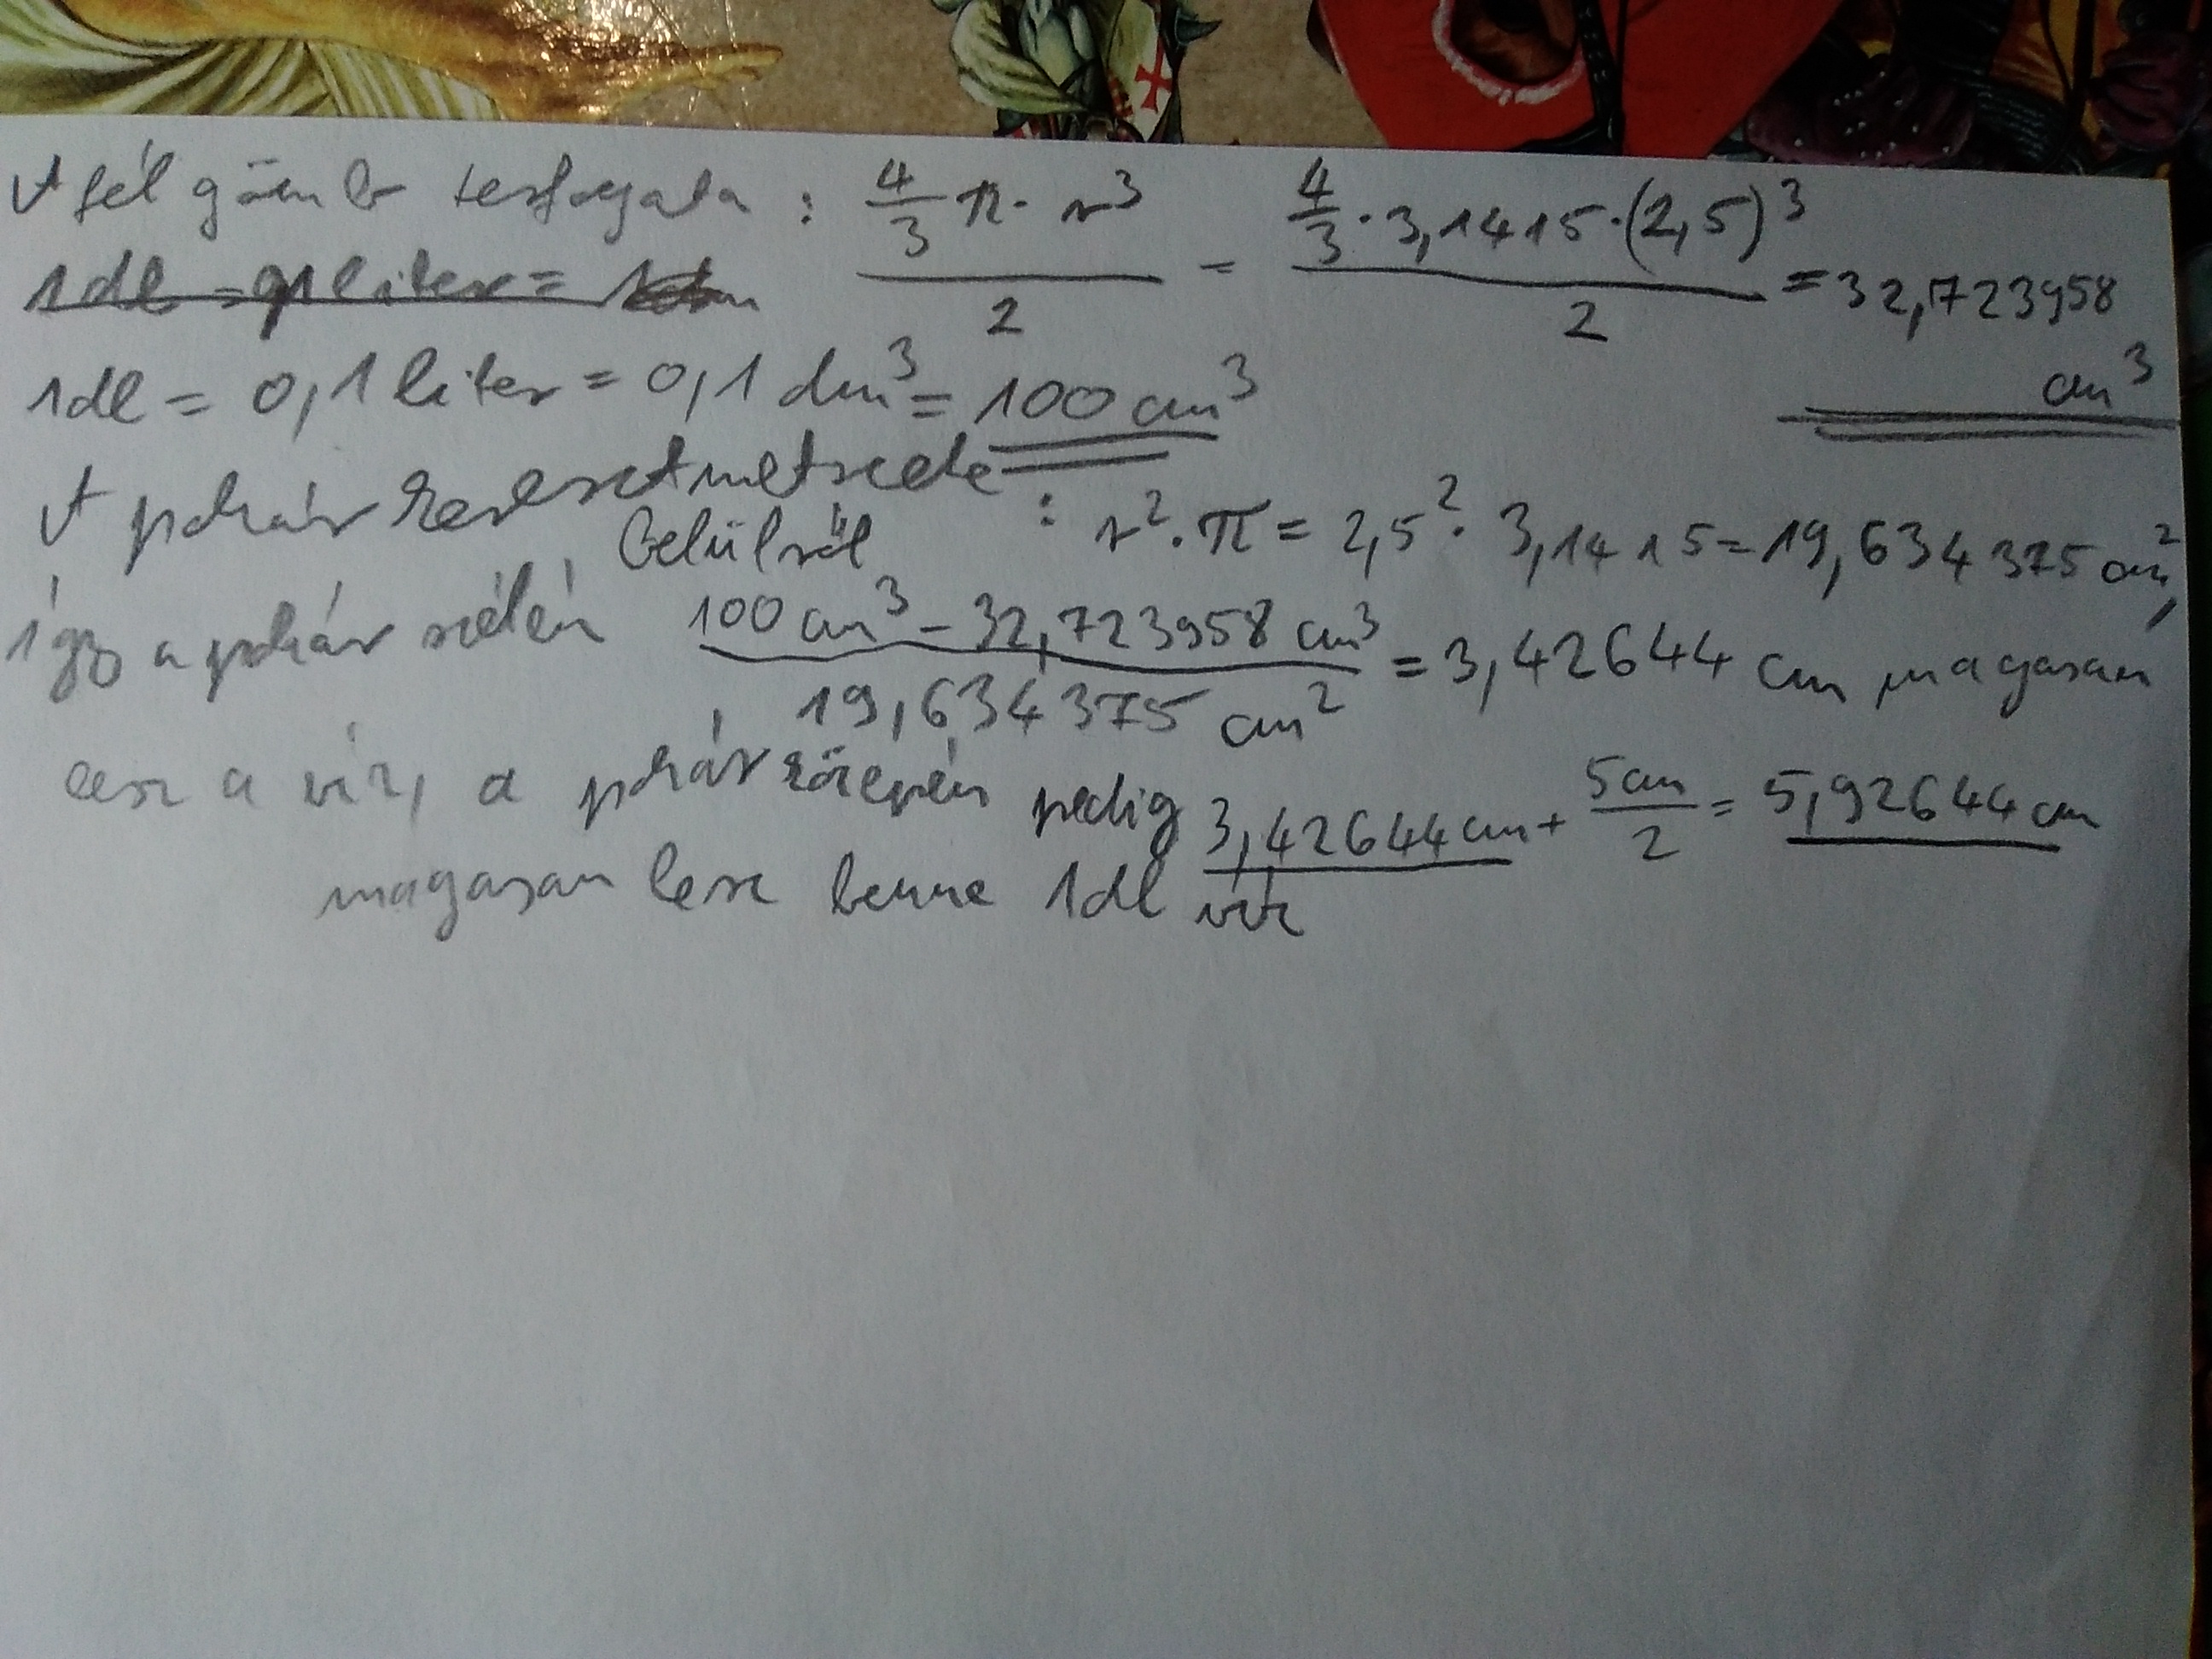 A fél gömb térfogata : (4/3 π · r³)/2 = (4/3 · 3,1415 · (2,5)³)/2 = 32,723958 cm³
1dl = 0,1 liter =
1dl = 0,1 liter = 0,1 dm³ = 100 cm³
A pohár keresztmetszete belülről : r² · π = 2,5² · 3,1415 = 19,634375 cm²,
így a pohár szélén (100 cm³ – 32,723958 cm³)/(19,634375 cm²) = 3,42644 cm magasan
lesz a víz, a pohár közepén pedig 3,42644 cm + 5cm/2 = 5,92644 cm
magasan lesz benne 1dl víz